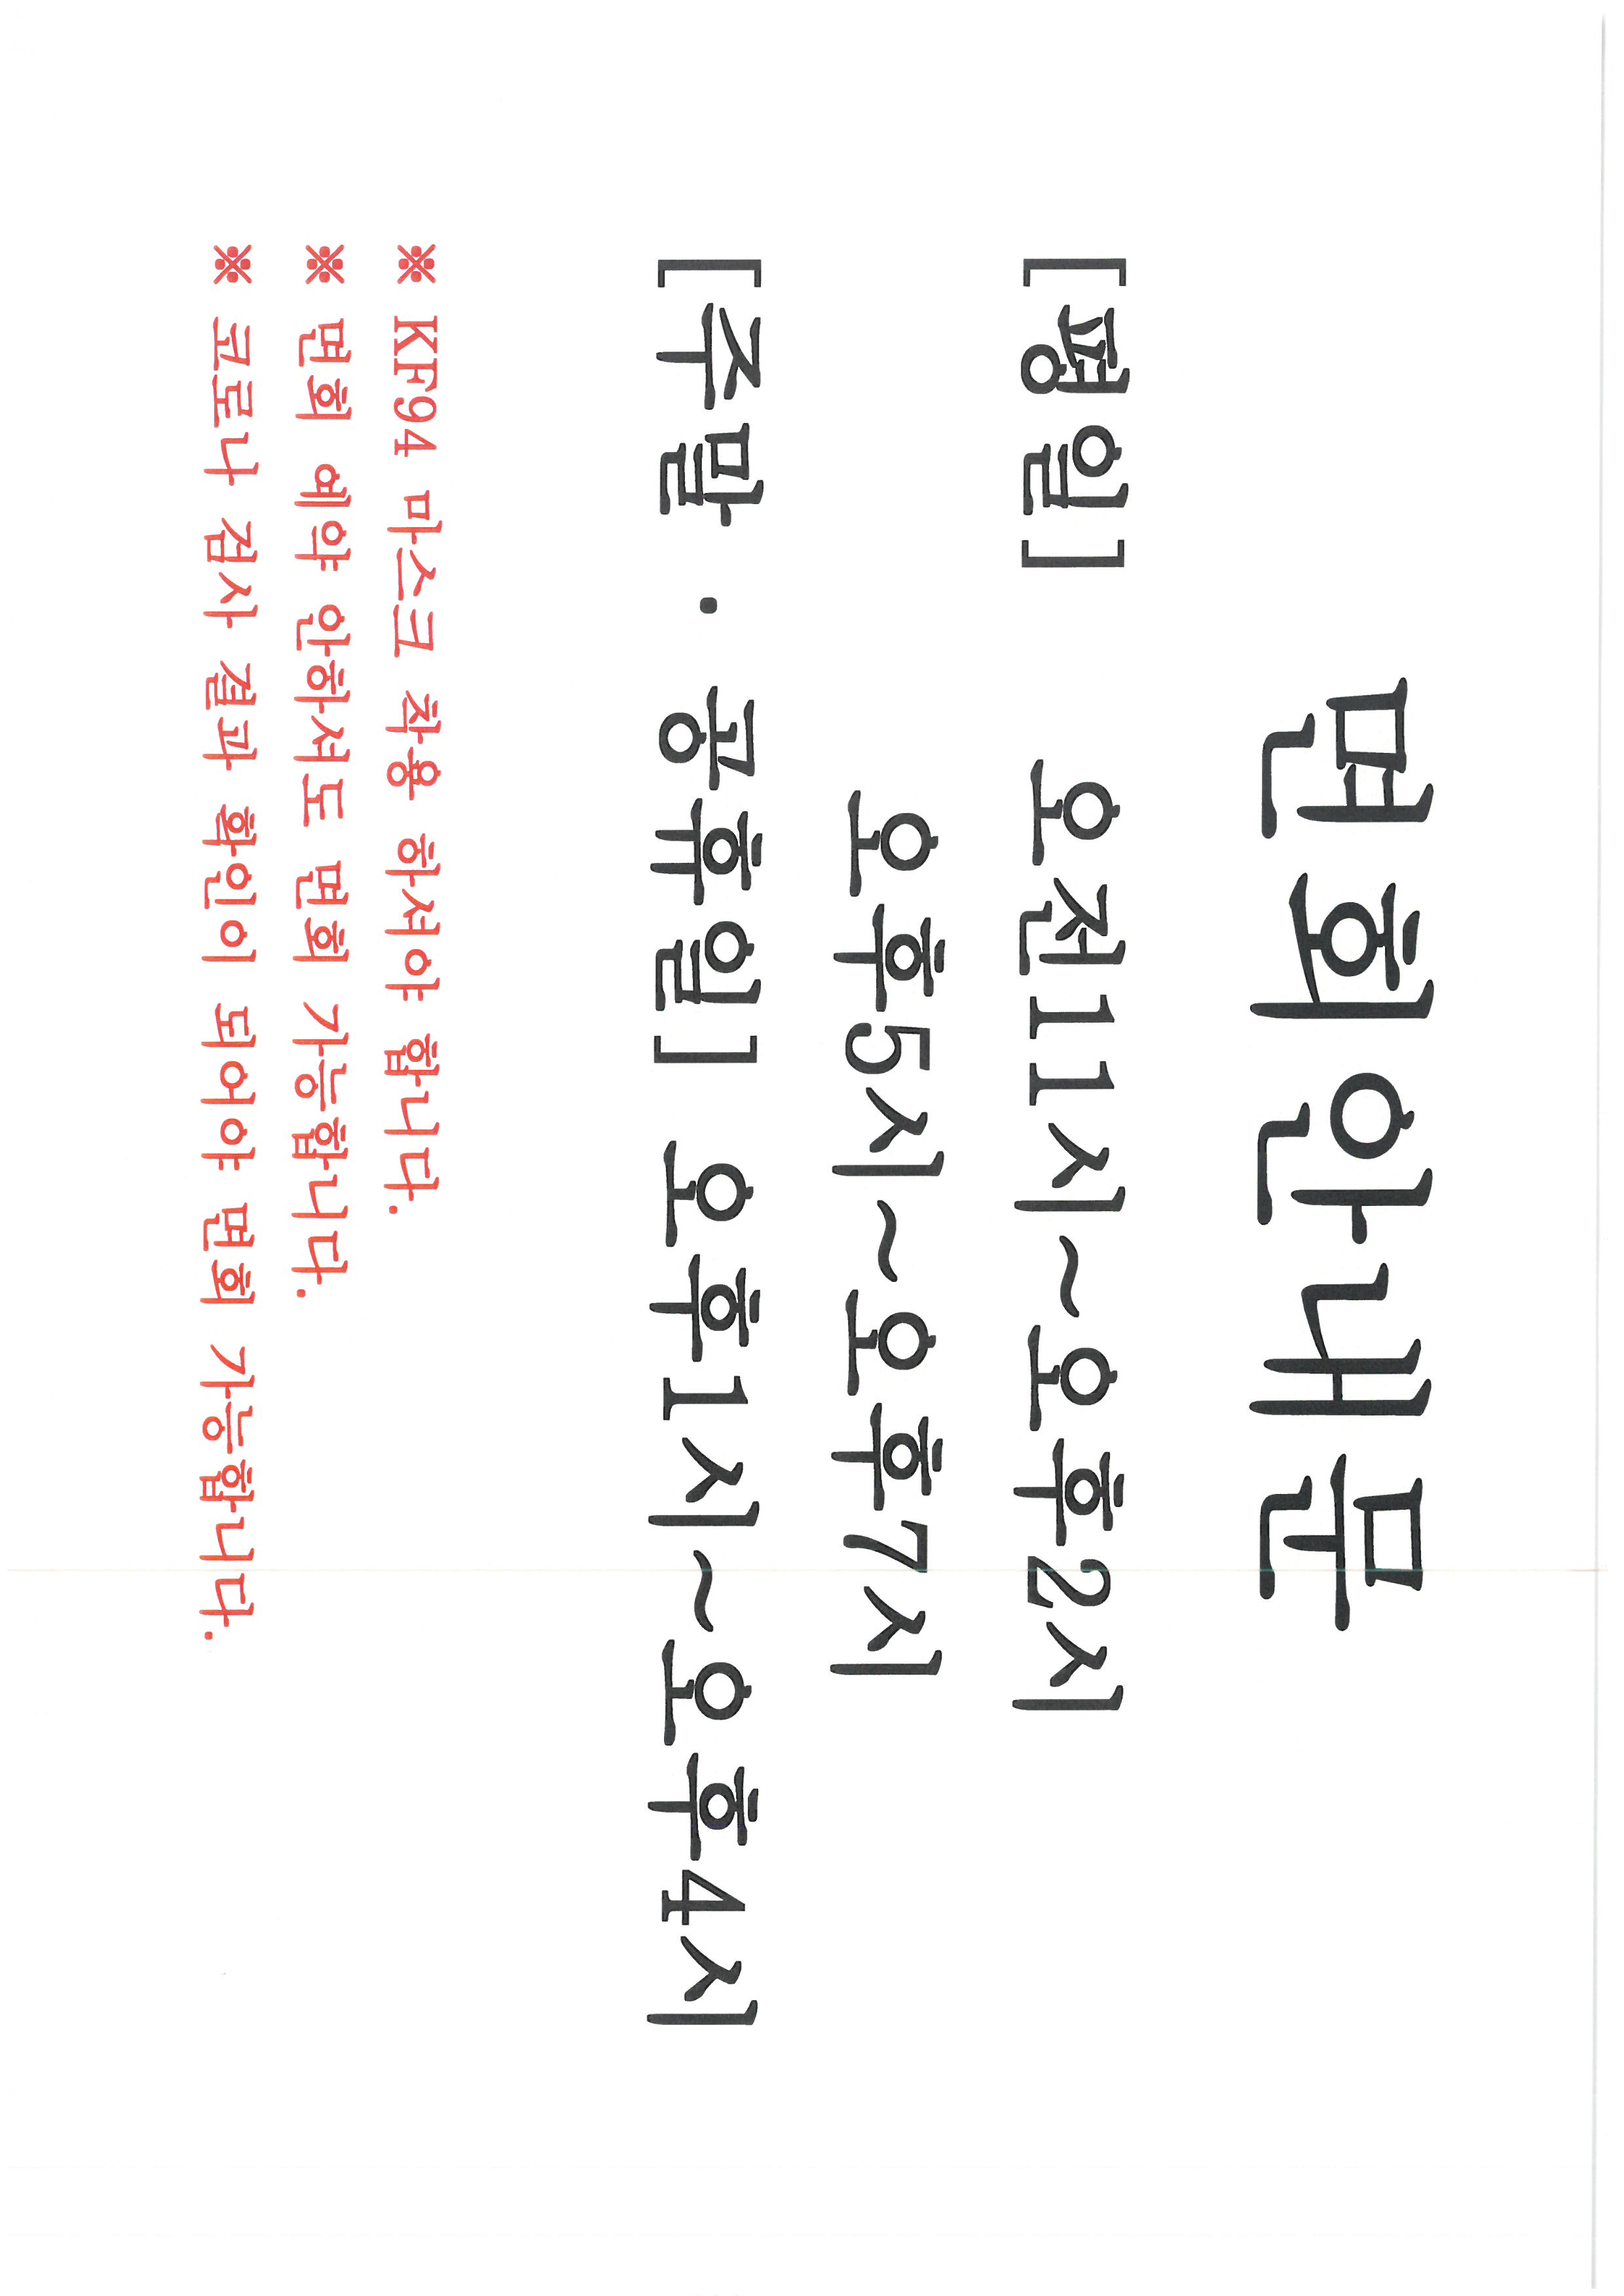 면회안내문
[평일] 오전11시~오후2시
오후5시~오후7시
[주말 · 공휴일] 오후1시~오후4시
※ KF94 마스크 착용 하셔야 합니다.
※ 면회 예약 안하셔도 면회 가능합니다.
※ 코로나 검사 결과 확인이 되어야 면회 가능합니다.